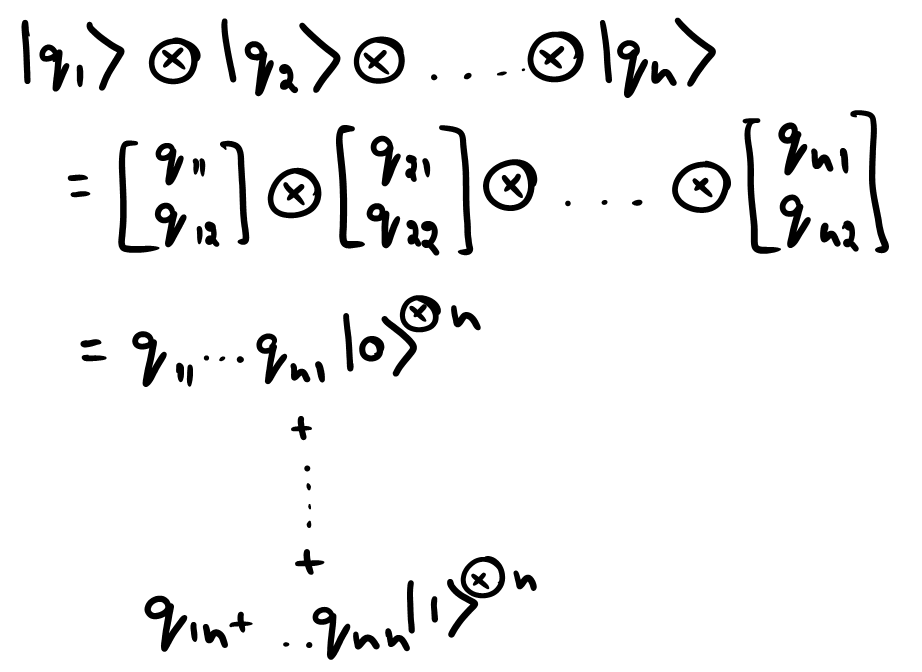 |q₁⟩ ⊗ |q₂⟩ ⊗ ..... ⊗ |qₙ⟩
= [q₁₁ q₁₂] ⊗ [q₂₁ q₂₂] ⊗ .... ⊗ [qₙ₁ qₙ₂]
= q₁₁...qₙ₁ |0⟩^⊗n
+
.
.
.
.
+
q₁ₙ+ ..qₙₙ|1⟩^⊗n